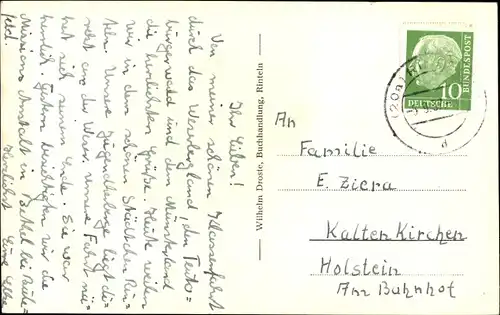 Ihr Lieben!
Von meiner schönen Klassenfahrt
durch das Weserbergland, den Teuto-
burgerwald und das Münsterland
die herzlichsten Grüße. Heute weilen
wir in dem schönen Städtchen Rin-
teln. Unsere Jugendherberge liegt di-
rekt an der Weser. Unsere Fahrt nä-
hert sich seinem Ende. Sie war
herrlich. Gestern besichtigten wir die
Missions Anstalt in Bethel bei Biele-
feld. Herzlichst Eure
Wilhelm Droste, Buchhandlung, Rinteln
DEUTSCHE BUNDESPOST
10
(20a)
d
An
Familie
E. Ziera
Kalten Kirchen
Holstein
Am Bahnhof